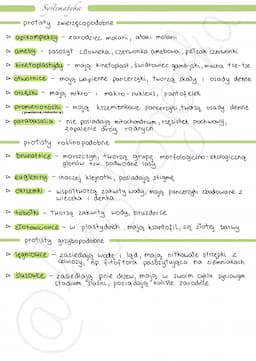 Systematyka
protisty zwierzęcopodobne
▷ apikompleksy - zarodziec malarii, ataki malarii
▷ ameby - pasożyt człowieka, czerwonka amebowa, pełzak czerwonki
▷ kinetoplastydy - mają kinetoplast, świdrowiec gambijski, mucha tse-tse
▷ otwornice - mają wapienne pancerzyki, tworzą skały i osady denne
▷ orzęski - mają mikro- i makro-nukleus, pantofelek
▷ promienionóżki - mają krzemionkowe pancerzyki, tworzą osady denne
▷ parabasalia - nie posiadają mitochondrium, rzęsistek pochwowy,
zapalenie dróg rodnych
protisty roślinopodobne
▷ brunatnice - morszczyn, tworzą grupę morfologiczno-ekologiczną
glonów tzw. podwodne lasy
▷ eugleniny - inaczej klejnotki, posiadają stigmę
▷ okrzemki - współtworzą zakwity wody, mają pancerzyk zbudowane z
wieczka i denka
▷ tobołki - tworzą zakwity wody, bruzdnice
▷ złotowiciowce - w plastydach mają ksantofil, są złotej barwy
protisty grzybopodobne
▷ lęgniowce - zasiedlają wodę i ląd, mają nitkowate strzępki z
celulozy, np. fitoftora pasożytująca na ziemniakach
▷ śluzowce - zasiedlają pnie drzew, mają w swoim cyklu życiowym
stadium śluźni, posiadają kuliste zarodnie